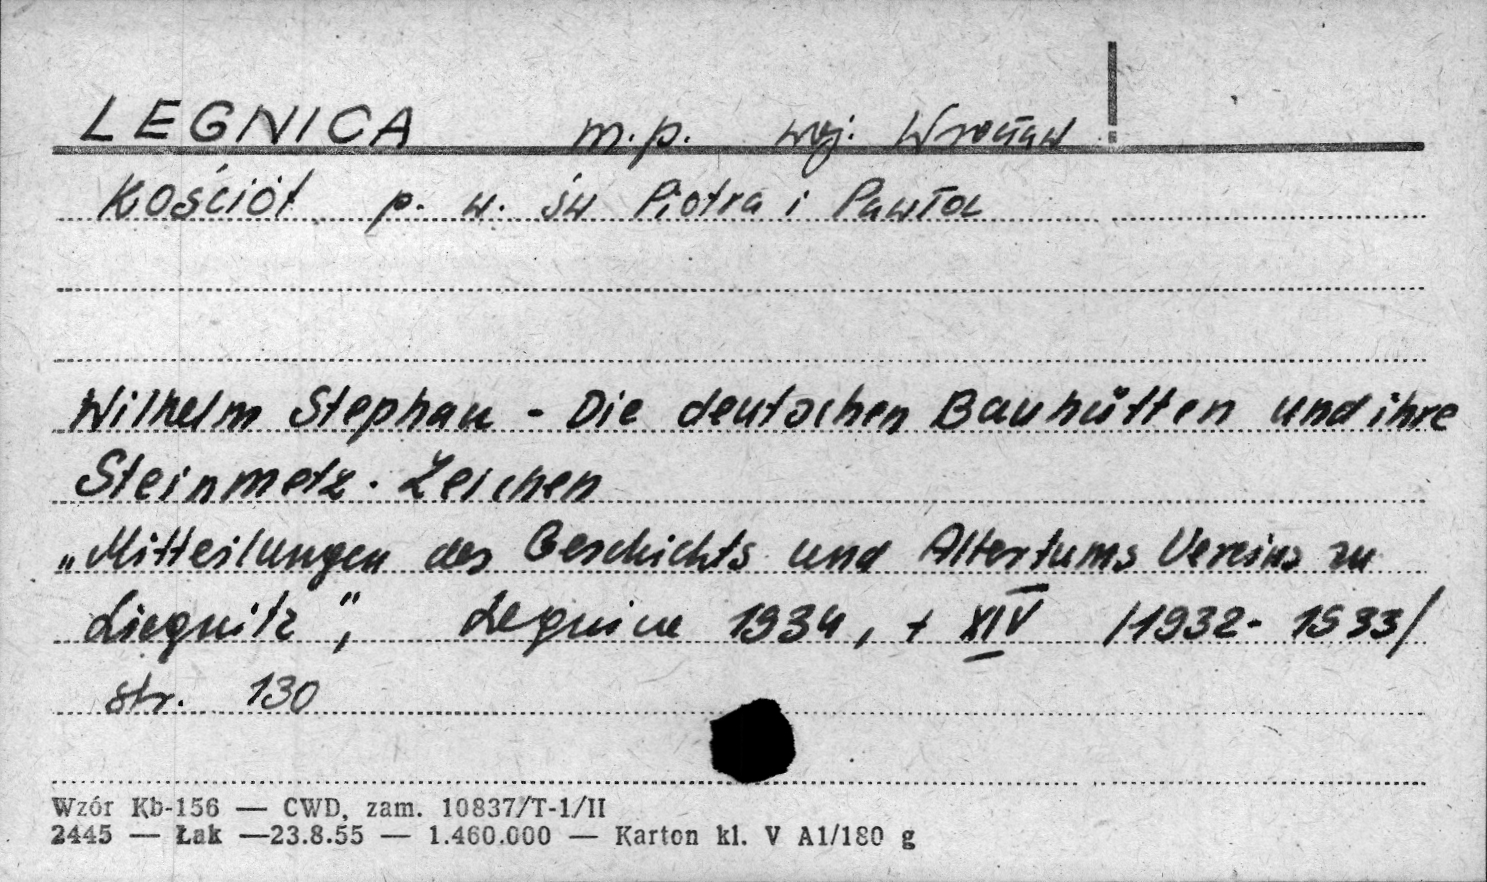 LEGNICA m.p. woj. Wrocław
Kościół p. w. św Piotra i Pawła
Wilhelm Stephan - Die deutschen Bauhütten und ihre
Steinmetz-Zeichen
„Mitteilungen des Geschichts und Altertums Vereins zu
Liegnitz", Legnica 1934, t XIV /1932-1933/
str. 130
Wzór Kb-156 — CWD, zam. 10837/T-1/II
2445 — Łak —23.8.55 — 1.460.000 — Karton kl. V A1/180 g